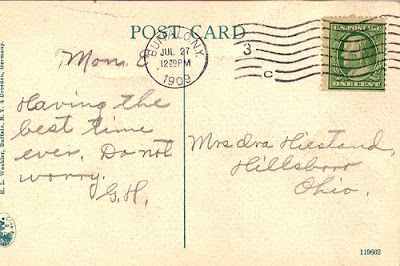 POST CARD
BUFFALO, N.Y.
JUL 27
12:30 PM
1909
3
C
U.S. POSTAGE
ONE CENT
Mon. E
Having the
best time
ever. Do not
worry.
G.H.
Mrs Ira Hiestand,
Hillsboro
Ohio.
H. L. Woehler, Buffalo, N. Y. & Dresden, Germany.
119602